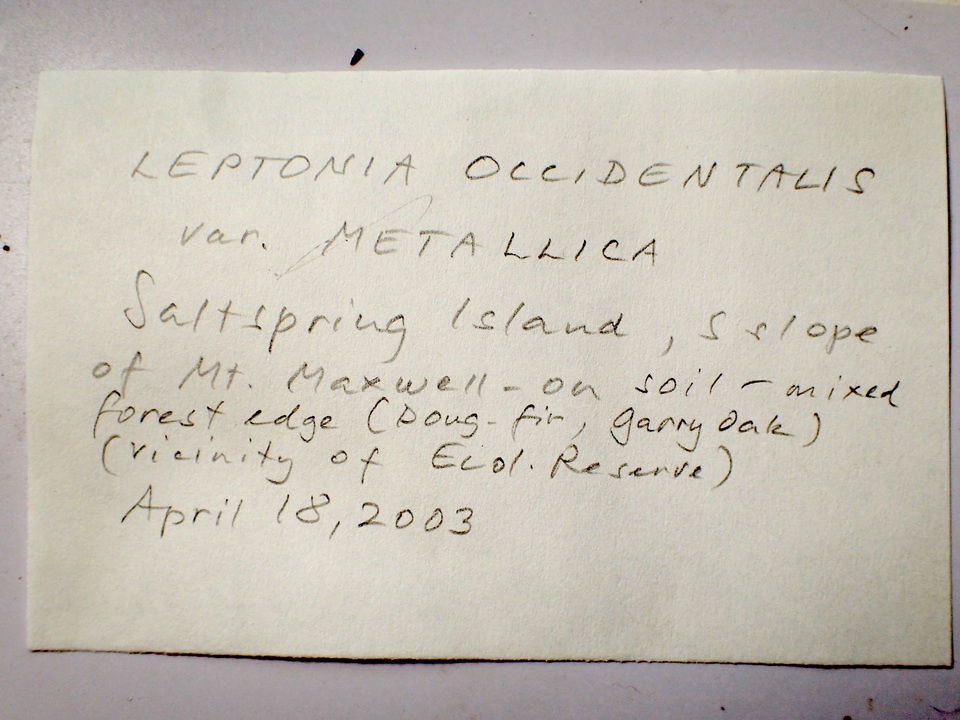 LEPTONIA OCCIDENTALIS
var. METALLICA
Saltspring Island, S slope
of Mt. Maxwell - on soil - mixed
forest edge (Doug-fir, Garry Oak)
(vicinity of Ecol. Reserve)
April 18, 2003